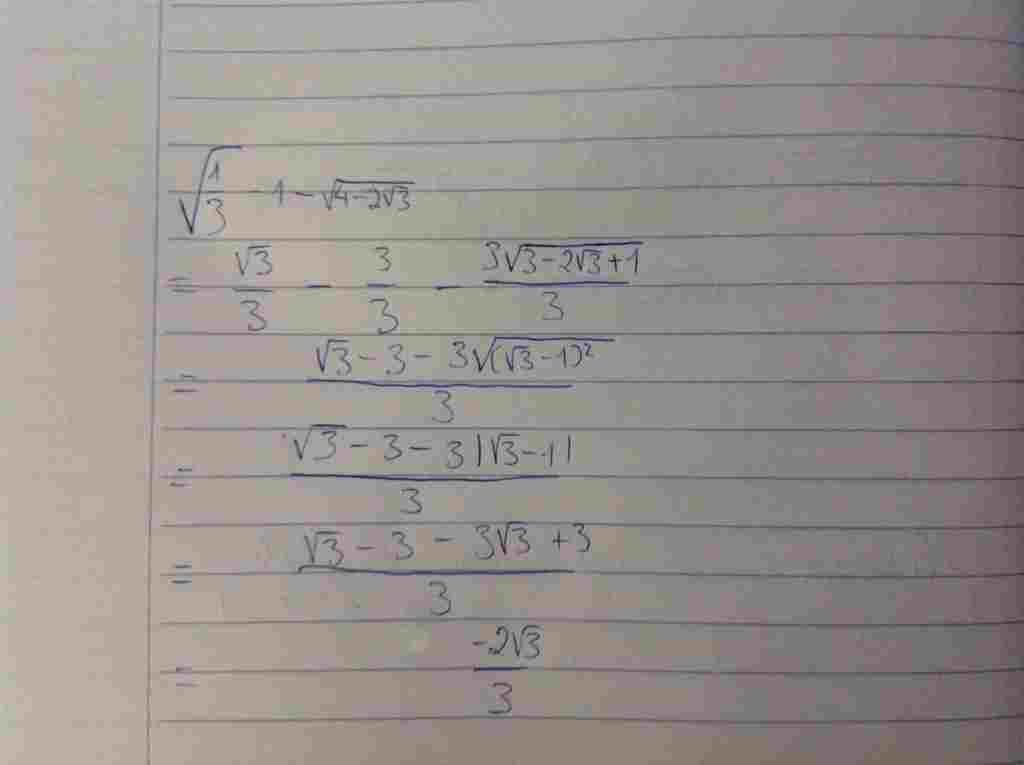 √(1/3) - 1 - √(4-2√3)
= √3/3 - 3/3 - 3√(3-2√3+1)/3
= (√3 - 3 - 3√((√3-1)²))/3
= (√3 - 3 - 3|√3-1|)/3
= (√3 - 3 - 3√3 + 3)/3
= -2√3/3